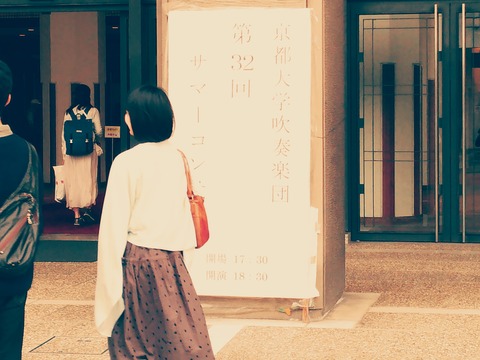 京都大学吹奏楽団
第32回
サマーコン
開場 17 30
開演 18 30